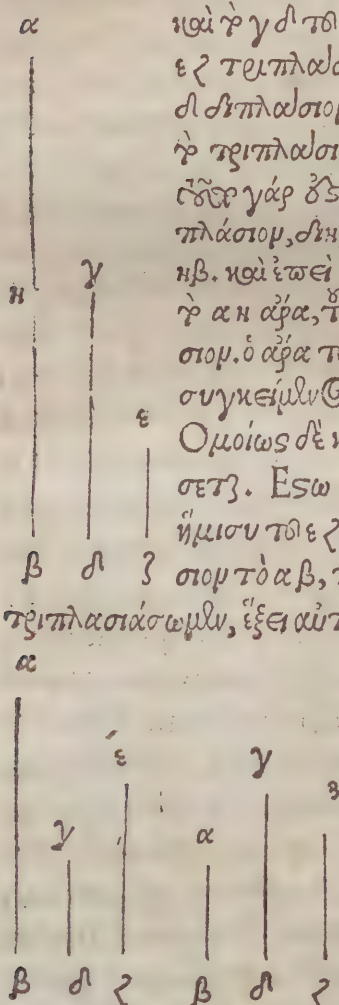 α
καὶ ὁ γδ τοῦ
εζ τριπλασ
δ διπλάσιον
ὁ τριπλάσι
γάρ
πλάσιον, δικ
ηβ. καὶ ἐπεὶ
ὁ αη ἄρα, τ
σιον. ὁ ἄρα το
συγκείμεν
Ομοίως δὲ κ
σεται. Εςω
ἥμισυ τοῦ εζ
σιον τὸ αβ, τ
τριπλασιάσωμεν, ἕξει αὐτ
η
γ
ε
β δ ζ
α
γ
ε
β δ ζ
α
γ
β δ ζ